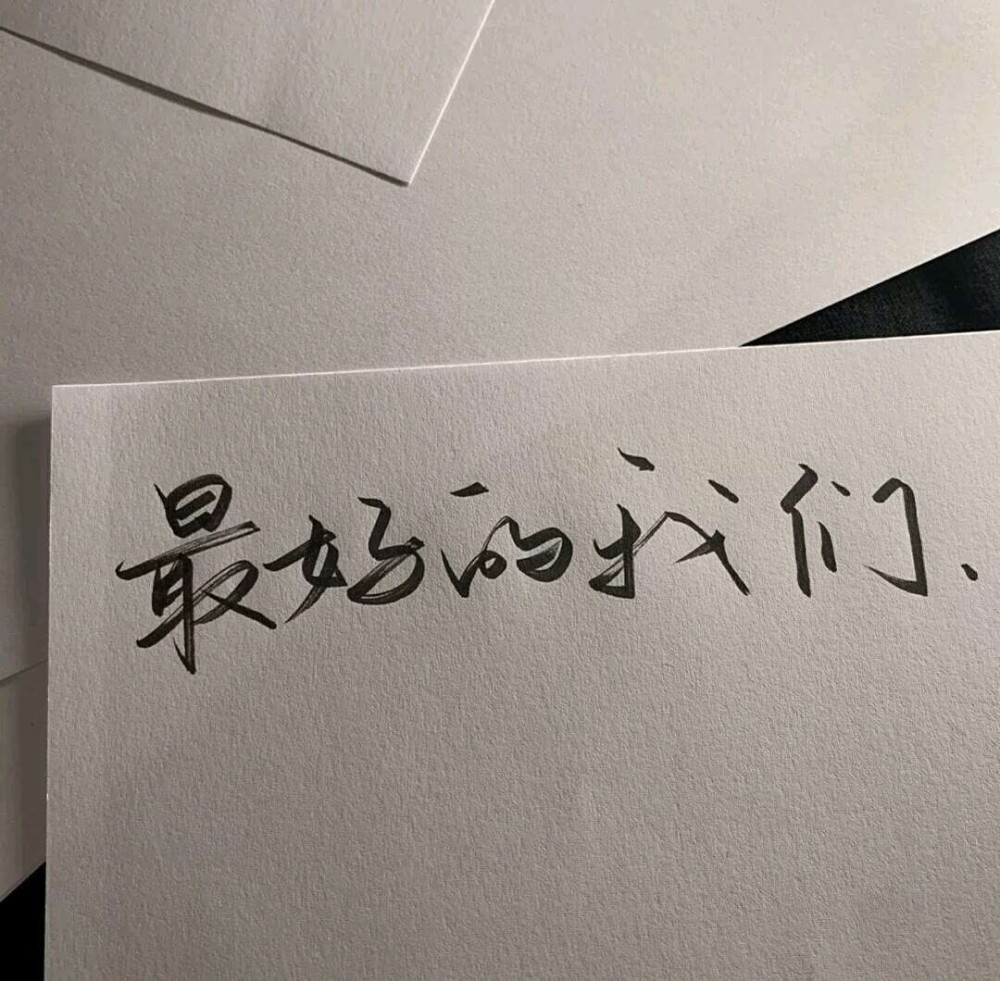 最好的我们.